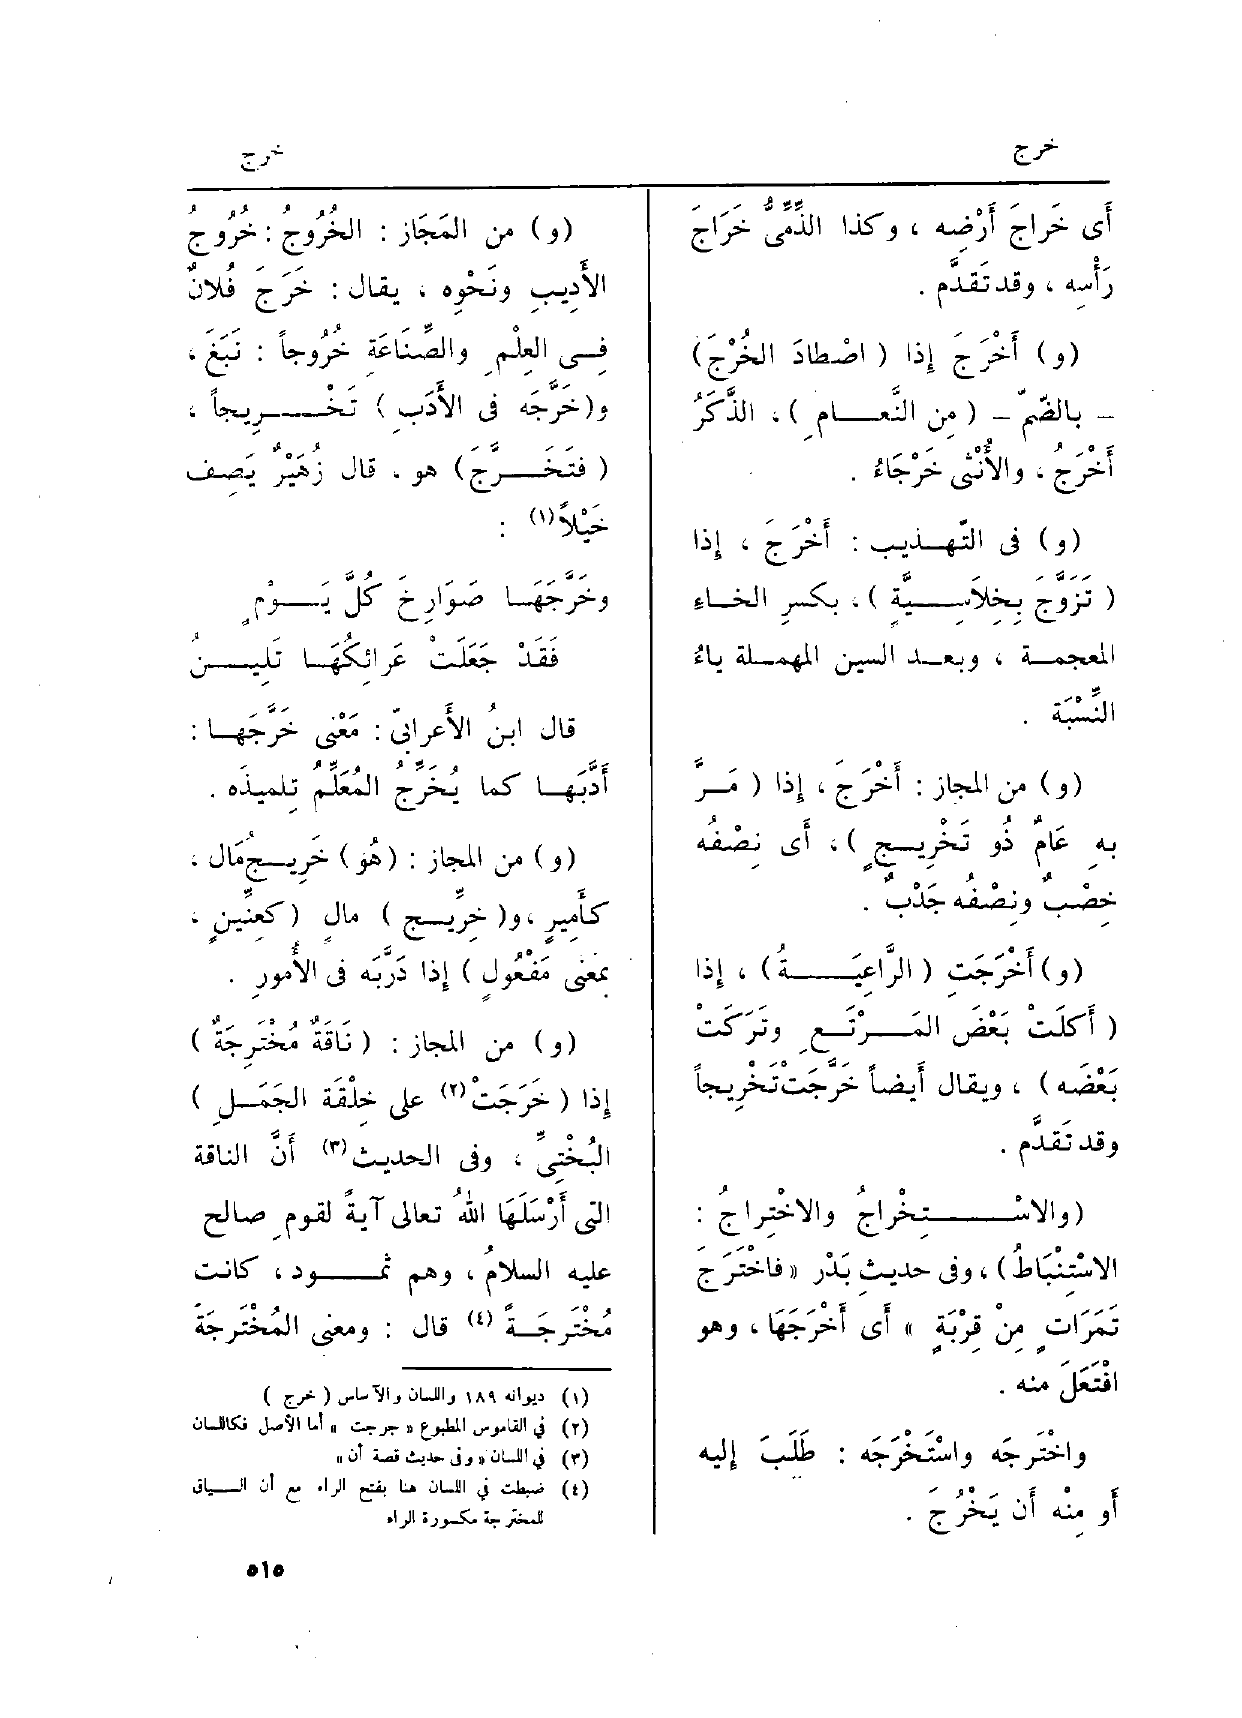 خرج
خرج
أَى خَراجَ أَرْضِه ، وكذا الذِّمِّىُّ خَرَاجَ
رَأْسِه ، وقد تَقدَّم .
(و) أَخْرَجَ إذا ( اصْطادَ الخُرْجَ)
– بالضّمّ – ( مِن النَّعامِ )، الذَّكَرُ
أَخْرَجُ ، والأُنْثَى خَرْجَاءُ .
(و) فى التَّهذيب : أَخْرَجَ ، إذا
( تَزَوَّجَ بِخِلاَسِيَّةٍ )، بكسرِ الخاءِ
المعجمة ، وبعد السين المهملة ياءُ
النِّسْبَة .
(و) من المجاز : أَخْرَجَ ، إذا ( مَرَّ
بهِ عَامٌ ذُو تَخْرِيجٍ )، أَى نِصْفُه
خِصْبٌ ونِصْفُه جَدْبٌ .
(و) أَخْرَجَتِ ( الرَّاعِيَةُ ) ، إذا
( أَكَلَتْ بَعْضَ المَرْتَعِ وتَرَكَتْ
بَعْضَه ) ، ويقال أَيضاً خَرَّجَتْ تَخْرِيجاً
وقد تَقدَّم .
(والاسْتِخْراجُ والاخْتِراجُ :
الاسْتِنْبَاطُ )، وفى حديث بَدْرٍ «فاخْتَرَجَ
تَمَرَاتٍ مِنْ قِرْبَةٍ » أَى أَخْرَجَهَا ، وهو
افْتَعَلَ منه .
واخْتَرجَه واسْتَخْرَجَه : طَلَبَ إليه
أَو مِنْه أَن يَخْرُجَ .
(و) من المَجَاز : الخُرُوجُ : خُرُوجُ
الأَدِيبِ ونَحْوِه ، يقال : خَرَجَ فُلانٌ
فى العِلْمِ والصِّنَاعَةِ خُرُوجاً : نَبَغَ ،
و(خَرَّجَه فى الأَدَبِ ) تَخْرِيجاً ،
( فتَخَرَّجَ ) هو ، قال زُهَيْرٌ يَصِف
خَيْلاً(١) :
وخَرَّجَهَا صَوَارِخَ كُلَّ يَوْمٍ
فَقَدْ جَعَلَتْ عَرَائكُهَا تَلِينُ
قال ابنُ الأَعرابىّ : مَعْنَى خَرَّجَها :
أَدَّبَها كما يُخَرِّجُ المُعَلِّمُ تلميذَه .
(و) من المجاز : (هُو) خَرِيجُ مَال ،
كأَمِيرٍ ، و( خِرِّيج ) مالٍ (كعِنِّينٍ ،
بمعنى مَفْعُولٍ ) إذا دَرَّبَه فى الأُمورِ .
(و) من المجاز : ( نَاقَةٌ مُخْتَرِجَةٌ )
إذا ( خَرَجَتْ(٢) على خِلْقَة الجَمَلِ )
البُخْتِىِّ ، وفى الحديث(٣) أَنَّ الناقة
التى أَرْسَلَهَا اللهُ تعالى آيةً لقومِ صالحٍ
عليه السلامُ ، وهم ثمود ، كانت
مُخْتَرَجَةً(٤) قال : ومعنى المُخْتَرِجَة
(١) ديوانه ١٨٩ واللسان والأساس ( خرج )
(٢) في القاموس المطبوع « جرجت » أما الأصل فكاللسان
(٣) في اللسان « وفى حديث قصة أن »
(٤) ضبطت في اللسان هنا بفتح الراء مع أن السياق
للمخترجة مكسورة الراء
٥١٥